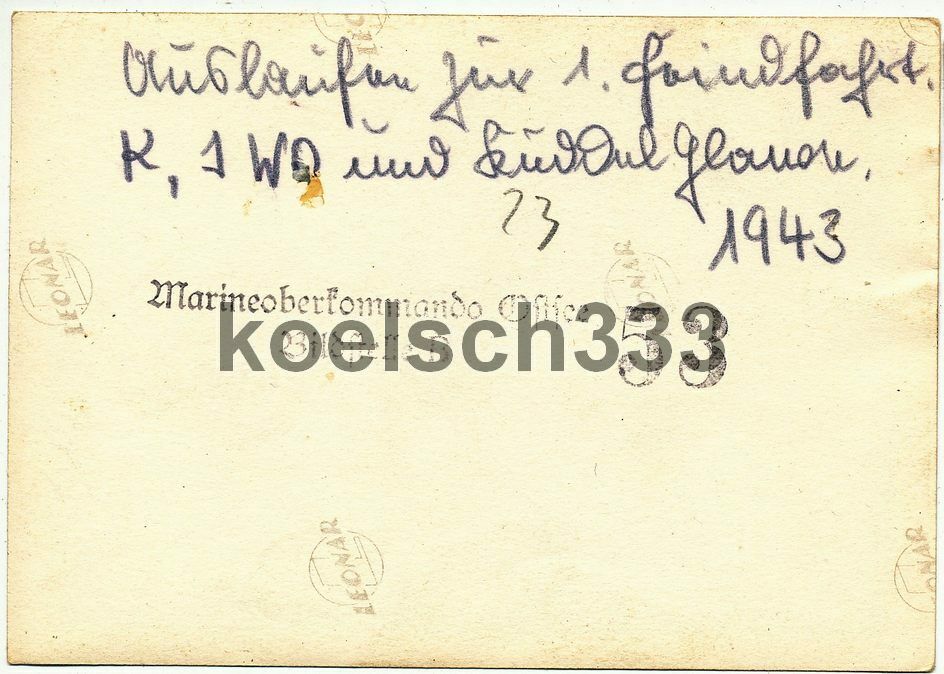 Auslaufen zur 1. Feindfahrt.
K, I WO und Kuddel
1943
23
Marineoberkommando Ostsee
53
koelsch333
LEONAR
LEONAR
LEONAR
LEONAR
LEONAR